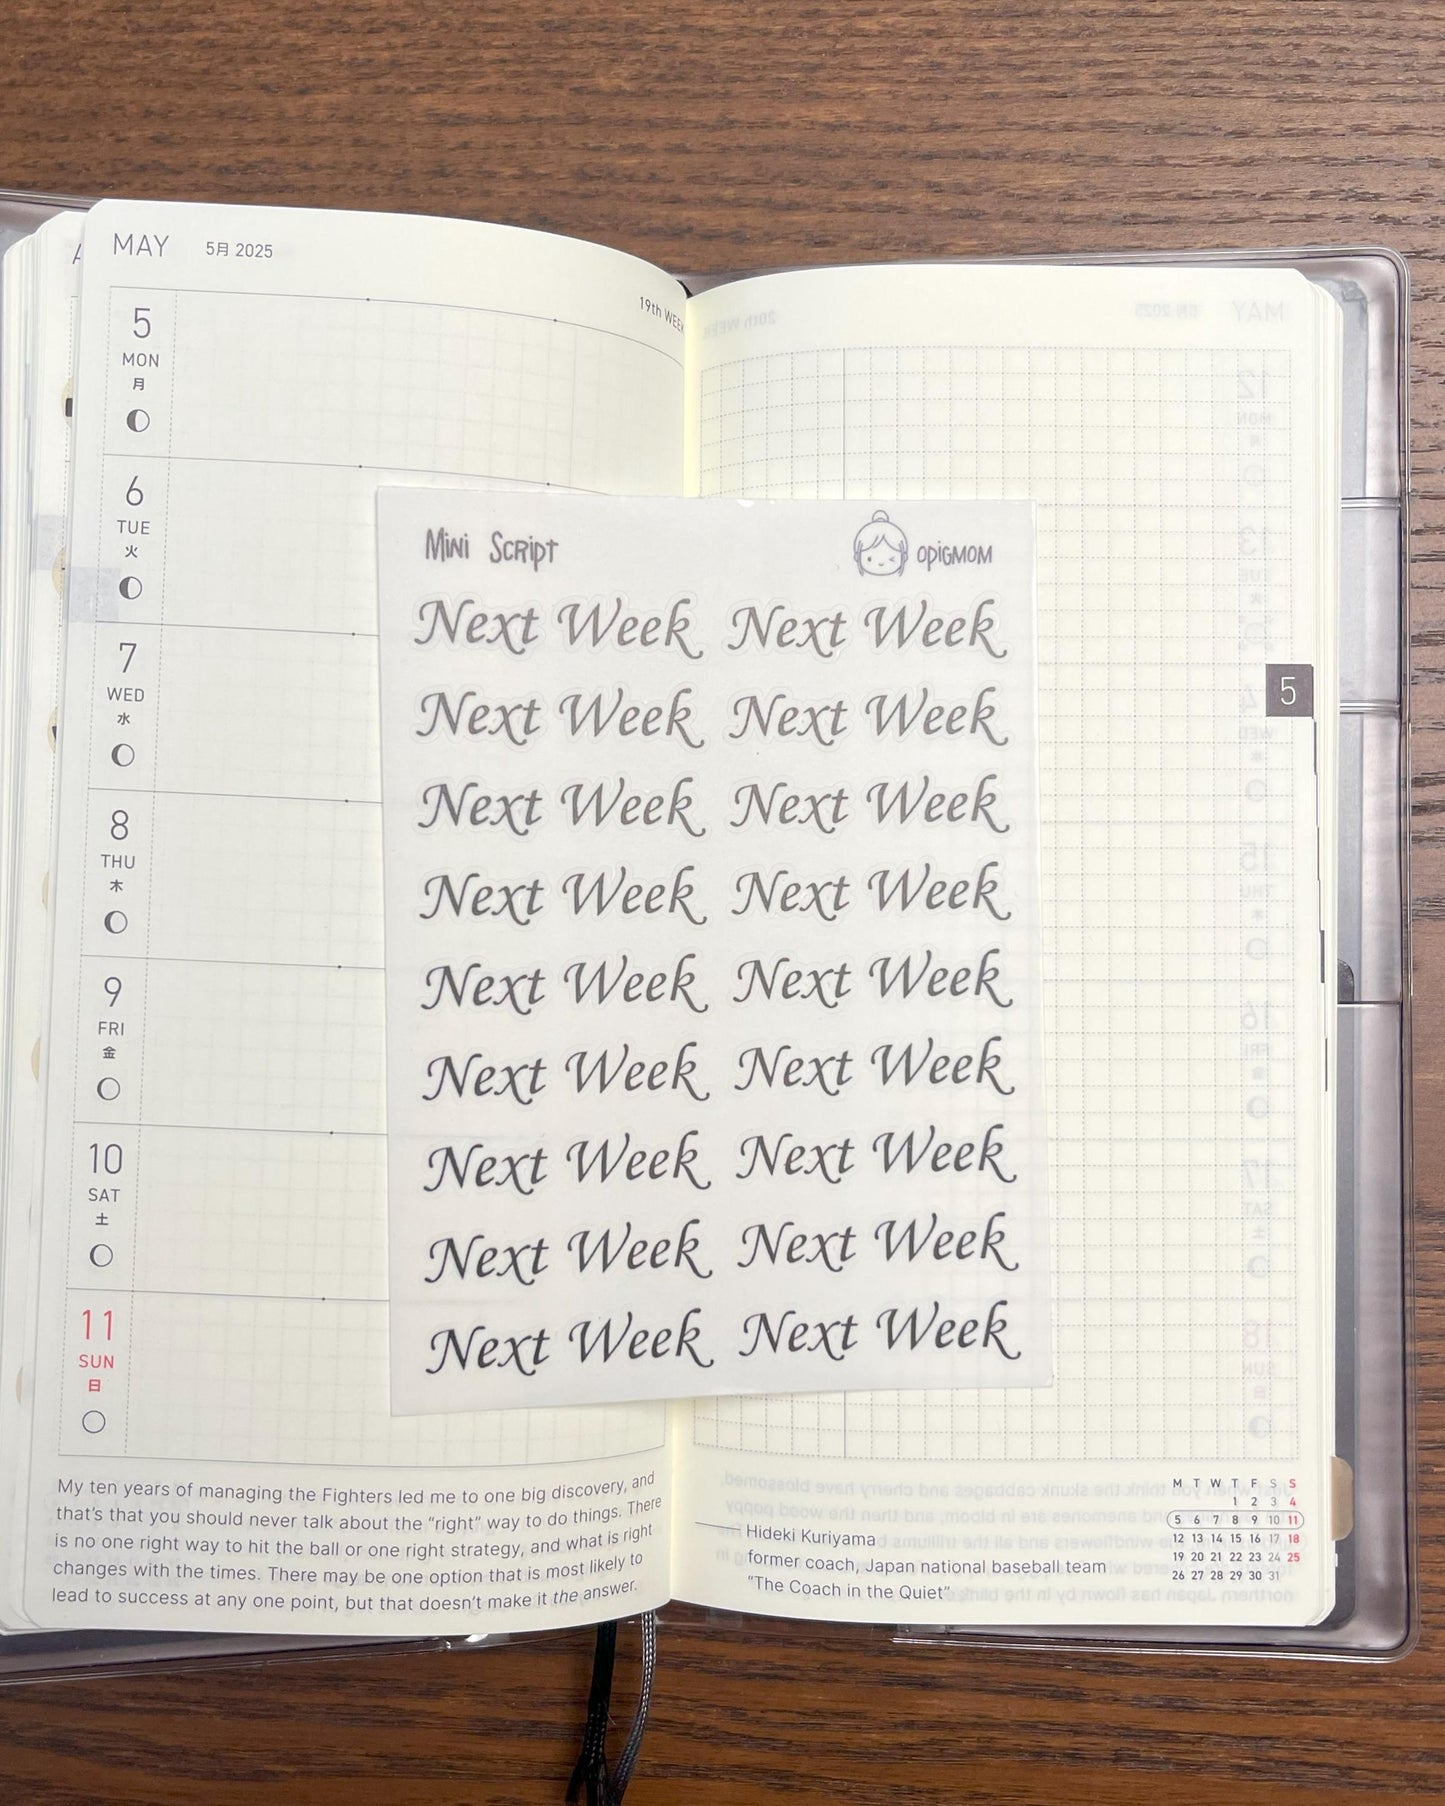 MAY 5月 2025
19th WEEK
5
MON
月
6
TUE
火
7
WED
水
8
THU
木
9
FRI
金
10
SAT
土
11
SUN
日
My ten years of managing the Fighters led me to one big discovery, and
that's that you should never talk about the “right” way to do things. There
is no one right way to hit the ball or one right strategy, and what is right
changes with the times. There may be one option that is most likely to
lead to success at any one point, but that doesn't make it the answer.
Mini Script
OPIGMOM
Next Week Next Week
Next Week Next Week
Next Week Next Week
Next Week Next Week
Next Week Next Week
Next Week Next Week
Next Week Next Week
Next Week Next Week
Next Week Next Week
5
Hideki Kuriyama
former coach, Japan national baseball team
“The Coach in the Quiet”
M T W T F S S
1 2 3 4
5 6 7 8 9 10 11
12 13 14 15 16 17 18
19 20 21 22 23 24 25
26 27 28 29 30 31